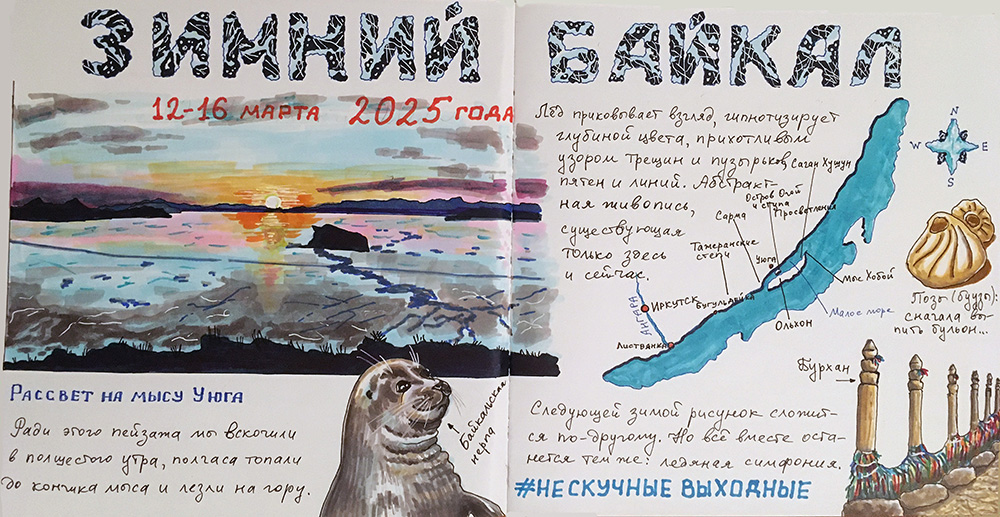 ЗИМНИЙ БАЙКАЛ
12-16 МАРТА 2025 ГОДА
РАССВЕТ НА МЫСУ УЮГА
Ради этого пейзажа мы вскочили
в полшестого утра, полчаса топали
до кончика мыса и лезли на гору.
Байкальская
нерпа
Лёд приковывает взгляд, гипнотизирует
глубиной цвета, прихотливым
узором трещин и пузырьков,
пятен и линий. Абстракт-
ная живопись,
существующая
только здесь
и сейчас.
Саган Хушун
Остров Огой
и ступа
Просветления
Сарма
Тажеранские
степи
Уюга
Бугульдейка
Иркутск
Ангара
Листвянка
Мыс Хобой
Малое море
Ольхон
N
W E
S
Позы (буузы):
сначала вы-
пить бульон...
Бурхан
Следующей зимой рисунок сложит-
ся по-другому. Но всё вместе оста-
нется тем же: ледяная симфония.
#НЕСКУЧНЫЕ ВЫХОДНЫЕ